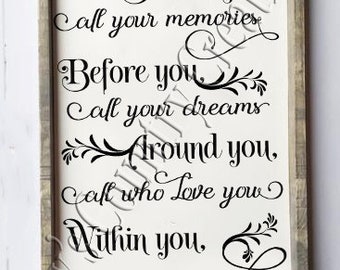 all your memories
Before you,
all your dreams
Around you,
all who Love you
Within you,